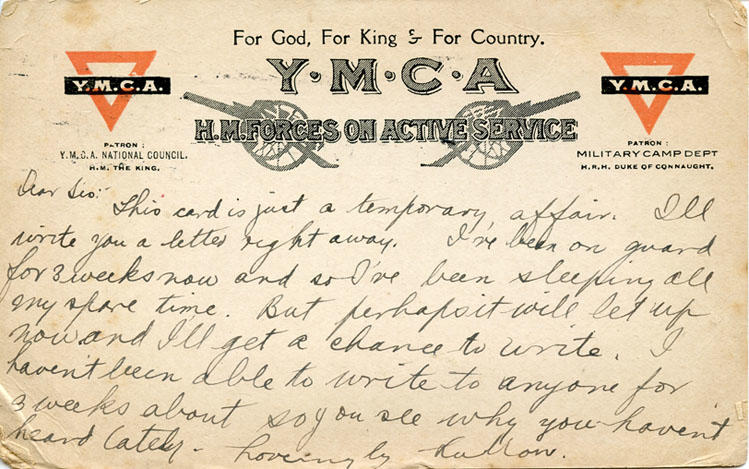 For God, For King & For Country.
Y·M·C·A
Y.M.C.A.
Y.M.C.A.
H.M. FORCES ON ACTIVE SERVICE
PATRON:
Y.M.C.A. NATIONAL COUNCIL.
H.M. THE KING.
PATRON:
MILITARY CAMP DEPT
H.R.H. DUKE OF CONNAUGHT.
Dear Sis:
This card is just a temporary affair. I'll
write you a letter right away. I've been on guard
for 3 weeks now and so I've been sleeping all
my spare time. But perhaps it will let up
now and I'll get a chance to write. I
haven't been able to write to anyone for
3 weeks about so you see why you haven't
heard lately - Lovingly